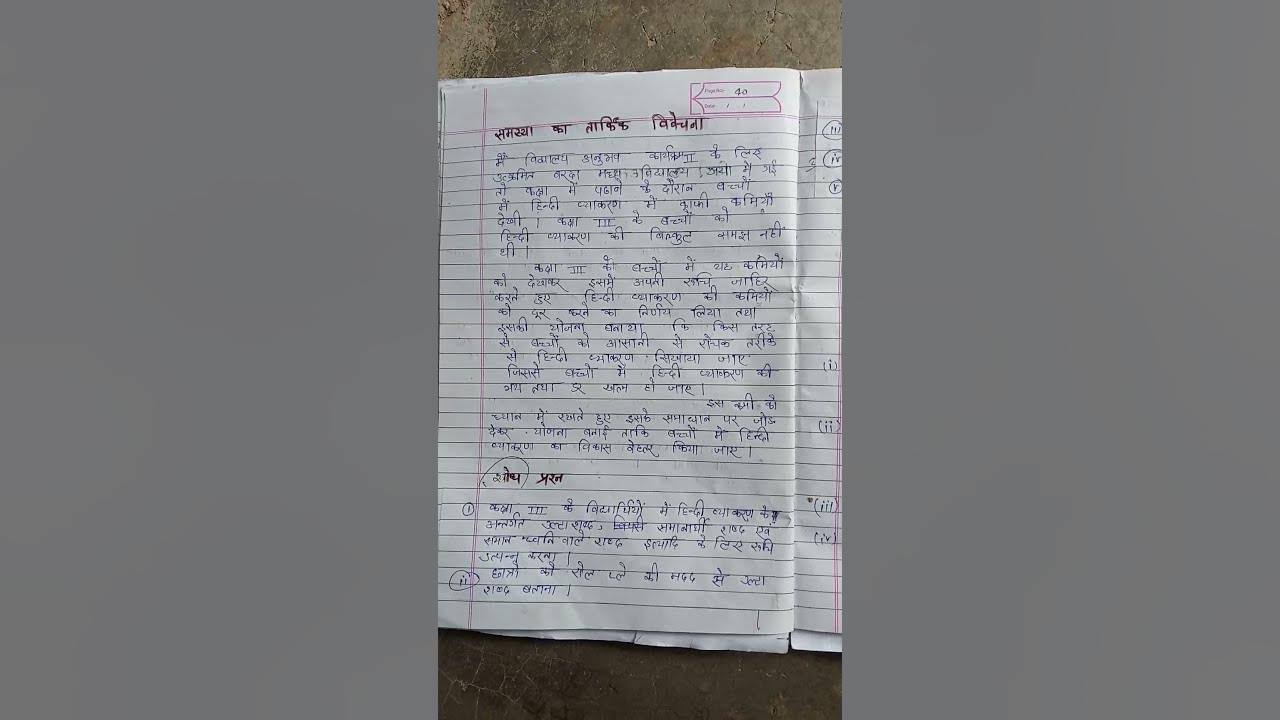 Page No. 40
Date: / /
समस्या का तार्किक विवेचना
मैं विद्यालय अनुभव कार्यक्रम II के लिए
उत्क्रमित बरदा मध्य विद्यालय, में गई
तो कक्षा में पढाने के दौरान बच्चों
में हिन्दी व्याकरण में काफी कमियाँ
देखी | कक्षा III के बच्चों को
हिन्दी व्याकरण की बिल्कुल समझ नहीं
थी |
कक्षा III के बच्चों में यह कमियों
को देखकर इसमें अपनी रूचि जाहिर
करते हुए हिन्दी व्याकरण की कमियों
को दूर करने का निर्णय लिया तथा
इसकी योजना बनाया कि किस तरह
से बच्चों को आसानी से रोचक तरीके
से हिन्दी व्याकरण सिखाया जाए
जिससे बच्चों में हिन्दी व्याकरण की
भय तथा डर खत्म हो जाए |
इस कमी को
ध्यान में रखते हुए इसके समाधान पर जोड
देकर योजना बनाई ताकि बच्चों में हिन्दी
व्याकरण का विकास बेहतर किया जाए |
शोध प्रश्न
i कक्षा III के विद्यार्थियों में हिन्दी व्याकरण के
अन्तर्गत उल्टा शब्द, समानार्थी शब्द एवं
समान ध्वनि वाले शब्द इत्यादि के लिए रूचि
उत्पन्न करना |
ii छात्रों को रोल प्ले की मदद से उल्टा
शब्द बताना |
iii
iv
v
(i)
(ii)
(iii)
(iv)